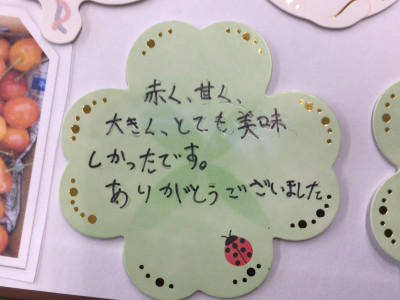 赤く、甘く、
大きく、とても美味
しかったです。
ありがとうございました